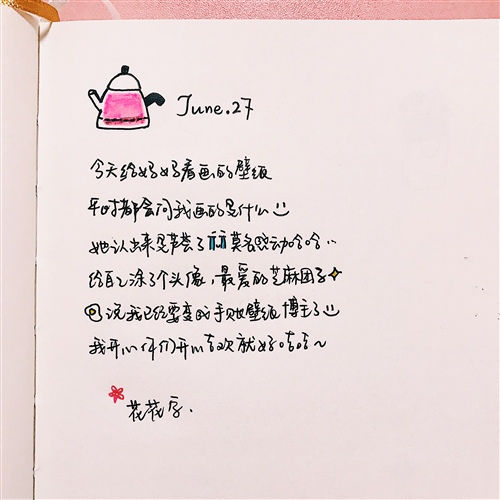 June.27
今天给好好看画的壁纸
平时都会问我画的是什么
她认出来是芦荟了 莫名感动哈哈
给自己涂了个头像,最爱的芝麻团子
说我已经要变成手账壁纸博主了
我开心你们开心喜欢就好哈哈~
花花字.